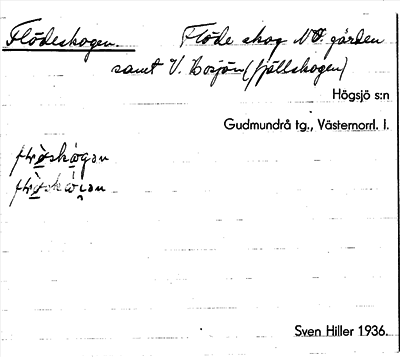 Flödeskogen. Flöde skog NO gården
samt V. Bosjön (fjällskogen)
Högsjö s:n
Gudmundrå tg., Västernorrl. l.
Sven Hiller 1936.